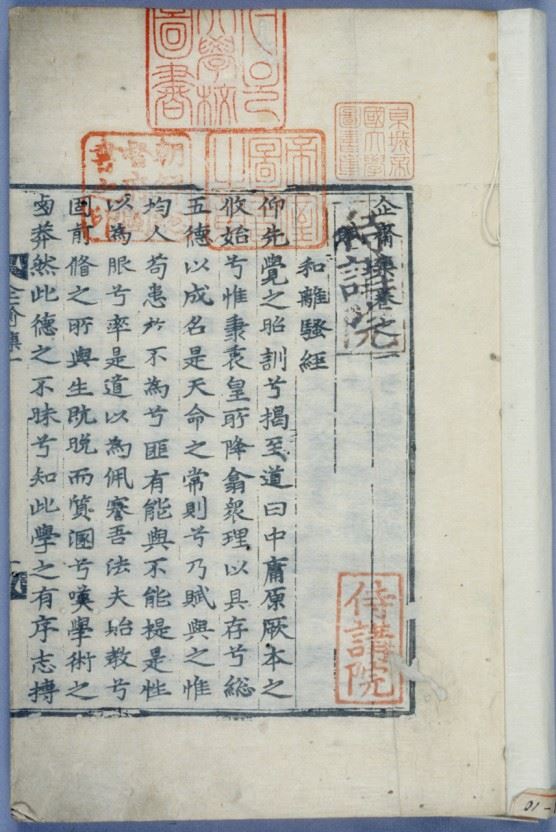 京城帝國大學圖書章
大學校圖書
帝室圖書之章
朝鮮總督府圖書之印
企齋集卷之一
賦
侍講院
和離騷經
仰先覺之昭訓兮揭至道曰中庸原厥本之
攸始兮惟秉衷皇所降翕衆理以具存兮総
五德以成名是天命之常則兮乃賦與之惟
均人苟患於不為兮匪有能與不能提是性
以為服兮率是道以為佩謇吾法夫始教兮
固前脩之所與生旣晩而質溷兮嘆學術之
鹵莽然此德之不昧兮知此學之有序志摶
企齋集一
侍講院